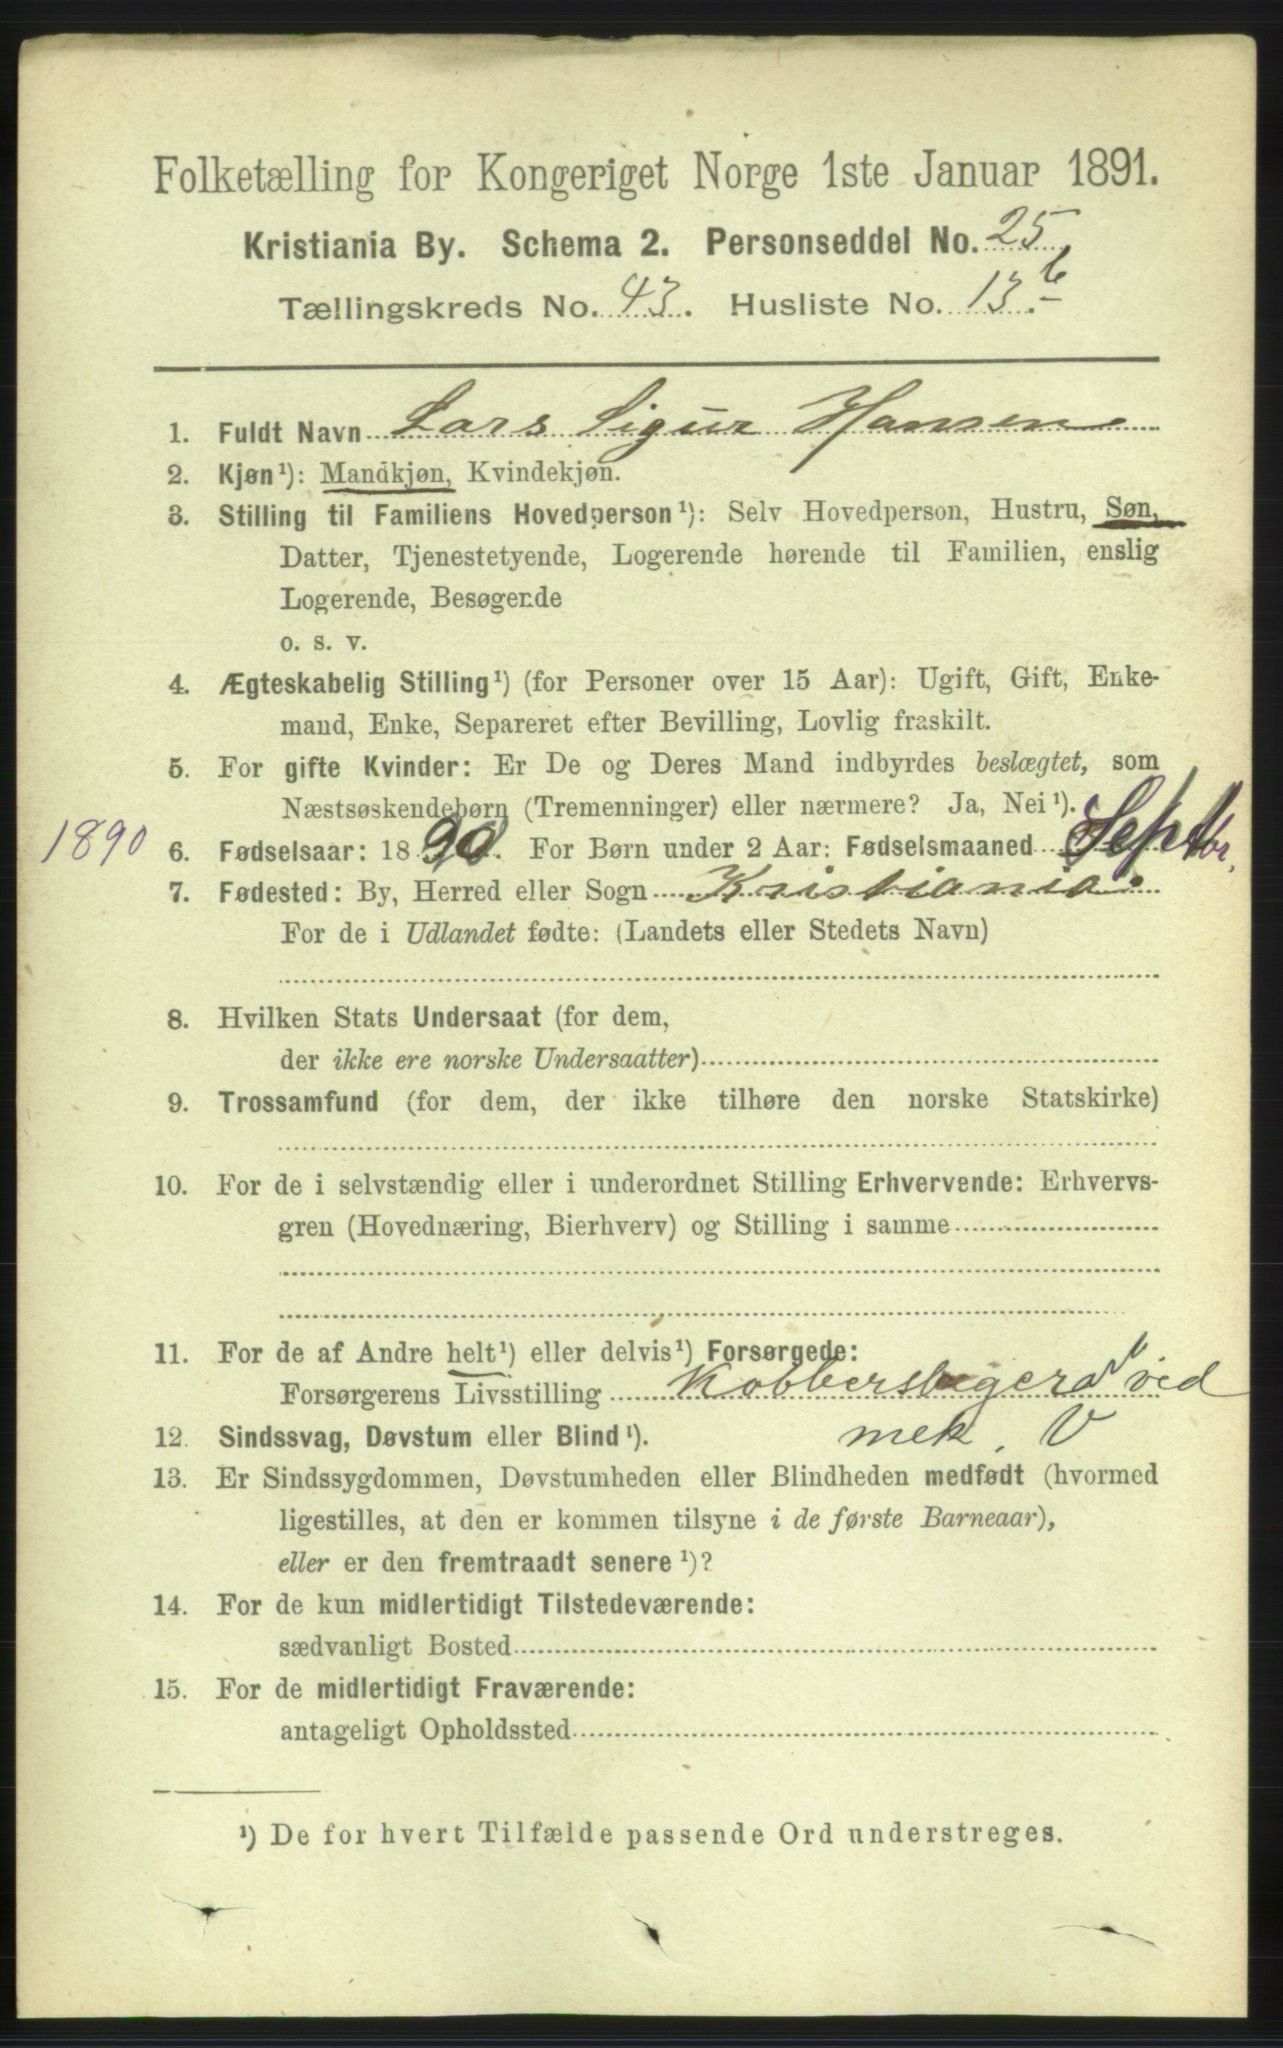 Folketælling for Kongeriget Norge 1ste Januar 1891.
Kristiania By. Schema 2. Personseddel No. 25
Tællingskreds No. 43. Husliste No. 13.b
1. Fuldt Navn Lars Sigur Hansen
2. Kjøn¹): Mandkjøn, Kvindekjøn.
3. Stilling til Familiens Hovedperson¹): Selv Hovedperson, Hustru, Søn,
Datter, Tjenestetyende, Logerende hørende til Familien, enslig
Logerende, Besøgende
o. s. v.
4. Ægteskabelig Stilling¹) (for Personer over 15 Aar): Ugift, Gift, Enke-
mand, Enke, Separeret efter Bevilling, Lovlig fraskilt.
5. For gifte Kvinder: Er De og Deres Mand indbyrdes beslægtet, som
Næstsøskendebørn (Tremenninger) eller nærmere? Ja, Nei¹).
1890 6. Fødselsaar: 1890. For Børn under 2 Aar: Fødselsmaaned Septbr.
7. Fødested: By, Herred eller Sogn Kristiania.
For de i Udlandet fødte: (Landets eller Stedets Navn)
8. Hvilken Stats Undersaat (for dem,
der ikke ere norske Undersaatter)
9. Trossamfund (for dem, der ikke tilhøre den norske Statskirke)
10. For de i selvstændig eller i underordnet Stilling Erhvervende: Erhvervs-
gren (Hovednæring, Bierhverv) og Stilling i samme
11. For de af Andre helt¹) eller delvis¹) Forsørgede:
Forsørgerens Livsstilling ved
12. Sindssvag, Døvstum eller Blind¹). mek. V
13. Er Sindssygdommen, Døvstumheden eller Blindheden medfødt (hvormed
ligestilles, at den er kommen tilsyne i de første Barneaar),
eller er den fremtraadt senere¹)?
14. For de kun midlertidigt Tilstedeværende:
sædvanligt Bosted
15. For de midlertidigt Fraværende:
antageligt Opholdssted
¹) De for hvert Tilfælde passende Ord understreges.